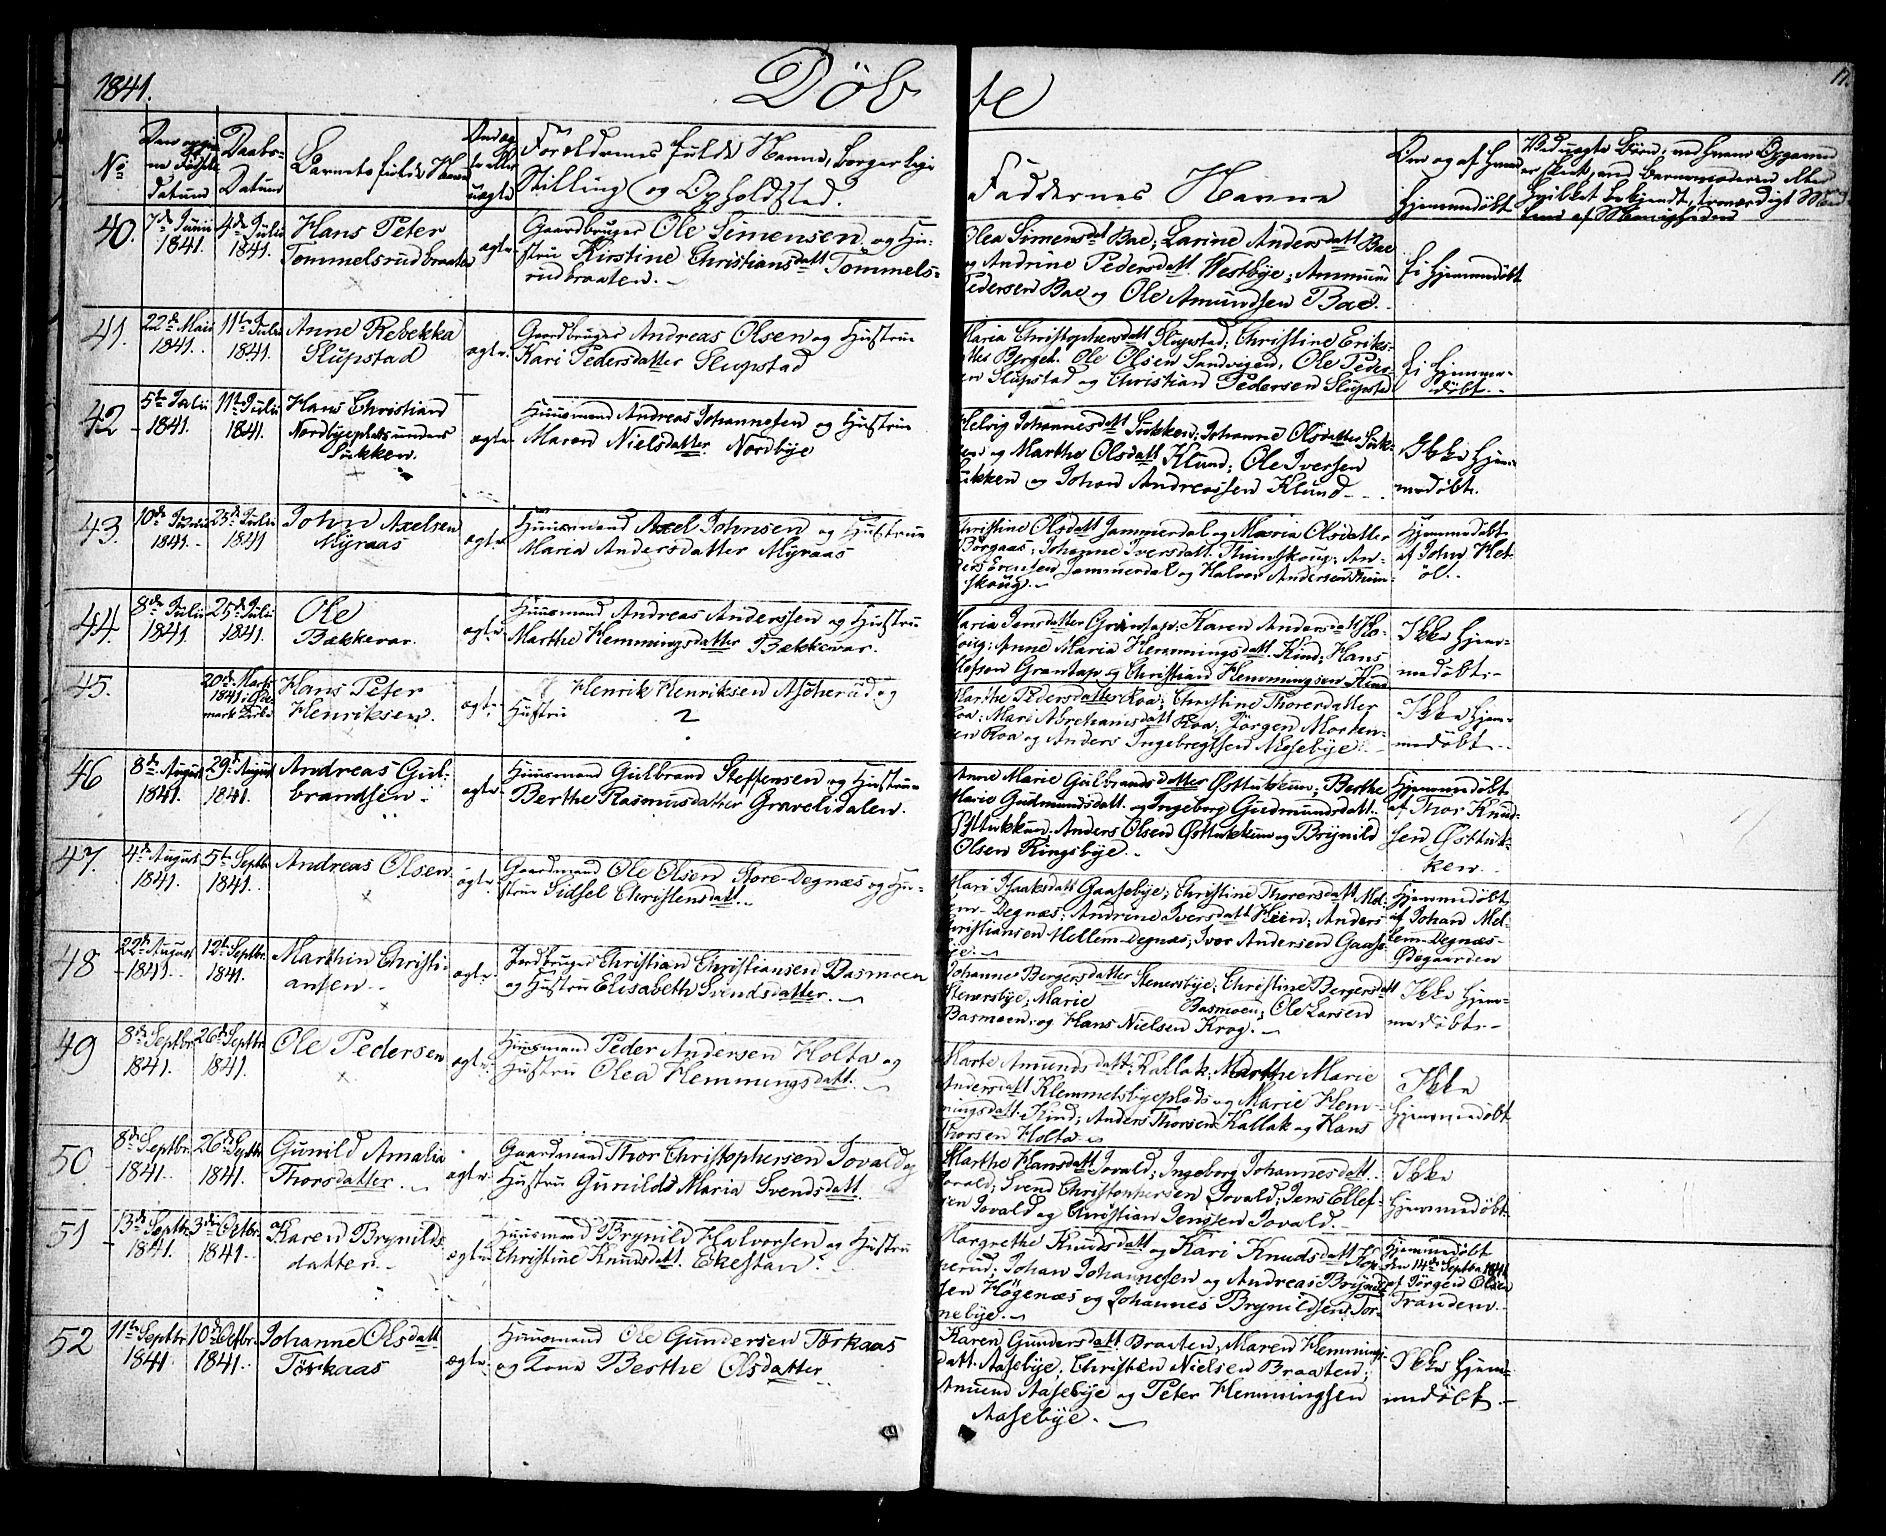 1841. Döbte 11.
No
Daabs-
Datum
Barnets fulde Navn
Foreldrenes fulde Navne, borgerlige
Stilling og Opholdsted.
Faddernes Navne
Om og af hvem
hjemmedøbt
40. 7de Junii 1841. 4de Julii 1841.
Hans Peter
Tommelsrudbraaten
ægte
Gaardbruger Ole Simensen og Hu-
stru Kirstine Christiansdatt Tommels-
rudbraaten.
Olea Simensdat Bae; Larine Andersdatt Bae
og Andrine Pedersdatt. Westbye; Ammund
Pedersen Bae og Ole Amundsen Bae.
Ei hjemmedøbt
41. 22de Maii 1841. 11te Julii 1841.
Anne Rebekka
Slupstad
ægte
Gaardbruger Andreas Olsen og Hustrue
Kari Pedersdatter Slupstad
Maria Christophersdatt Slupstad; Christine Eriks-
datter Berget. Ole Olsen Sandvigen, Ole Peder-
sen Slupstad og Christian Pedersen Slupstad
Ei hjemme-
døbt.
42 5te Julii 1841. 11te Julii 1841.
Hans Christian
Nordbyeplads under
Sukken.
ægte
Huusmand Andreas Johannesen og Hustrue
Maren Nielsdatter Nordbye
Helvig Johannesdatt Sukken; Johanne Olsdatter Suk-
ken og Marthe Olsdatt Klund; Ole Iversen
Sukken og Johan Andreassen Klund
Ikke hjem-
medøbt.
43. 10de Junii 1841. 25de Julii 1841
John Axelsen
Myraas
ægte
Huusmand Axel Johnsen og Hustrue
Maria Andersdatter Myraas
Christine Olsdatt Jammerdal og Maria Olsdatter
Børgaas; Johanne Iversdatt. Thunskoug; An-
ders Erensen Jammerdal og Halvor Andersen Thun-
skoug.
Hjemmedøbt
af John Het-
øl.
44. 8de Julii 1841. 25de Julii 1841.
Ole
Bækkevar.
ægte
Huusmand Andreas Anderssen og Hustrue
Marthe Hemmingsdatter Bækkevar.
Maria Jensdatter Grantap; Karen Andersdatt Sko-
oug; Anne Maria Hemmingsdatt. Kind; Hans
Olefson Grantap og Christian Hemmingsen Kind
Ikke hjem-
medøbt.
45. 20de Marts 1841
Hans Peter
Henriksen.
ægte
Henrik Henriksen Asperud og
Hustru ?
Marthe Pedersdatter Roa; Christine Thorersdatter
Roa; Mari Abrahamsdatt Roa; Jørgen Morten-
sen Roa og Anders Ingebregtsen Mosebye.
Ikke hjem-
medøbt
46 8de August 1841. 29de August 1841.
Andreas Gul-
brandsen
ægte
Huusmand Gulbrand Steffensen og Hustrue
Berthe Rasmusdatter Gravelidalen.
Anne Marie Gulbrandsdatter Østtukkun; Berthe
Marie Gudmundsdatt. og Ingeborg Gudmundsdatt.
Østtukkun. Anders Olsen Østtukkun og Brynild
Olsen Ringsbye.
Hjemmedøbt
af Thor Knud-
sen Østtuk-
ken
47. 4de August 1841. 5te Septbr 1841.
Andreas Olsen
ægte
Gaardmand Ole Olsen Store-Degnæs og Hu-
stru Sidsel Christensdatt.
Mari Isaaksdatt Gaasebye; Christine Thorersdatt Mel-
lem-Degnæs; Andrine Iversdatt Heen; Anders
Christiansen Mellem-Degnæs; Iver Andersen Gaase-
bye.
Hjemmedøbt
af Johan Mel-
lem-Degnæs-
Ødegaarden
48 22de August 1841. 12te Septbr. 1841.
Marthin Christi-
ansen
ægte
Jordbruger Christian Christiansen Basmoen
og Hustru Elisabeth Svendsdatter.
Johanne Bergersdatter Stenersbye; Christine Bergersdatt
Stenersbye; Marie Basmoen; Ole Larsen
Basmoen og Hans Nielsen Krog.
Ikke hjem-
medøbt.
49 8de Septbr. 1841. 26de Septbr. 1841.
Ole Pedersen
ægte
Huusmand Peder Andersen Holta og
Hustru Olea Hemmingsdatt.
Marte Amundsdatt. Kallak; Marthe Marie
Andersdatt Klemmetsbyeplads og Marie Hem-
mingsdatt. Kind; Anders Thorsen Kallak og Hans
Thorsen Holta
Ikke
hjemmedøbt
50 8de Septbr. 1841. 26de Septbr 1841.
Gunild Amalia
Thorsdatter.
ægte
Gaardmand Thor Christophersen Jovald og
Hustru Gunild Maria Svendsdatt.
Marthe Hansdatt Jovald; Ingeborg Johannesdatt.
Jovald; Svend Christophersen Jovald; Jens Ellef-
sen Jovald og Christian Jenssen Jovald.
Ikke
hjemmedøbt.
51 13de Septbr. 1841. 3die Octbr. 1841.
Karen Brynilds-
datter
ægte
Huusmand Brynild Halvorsen og Hustru
Christine Knudsdatt. Ekestan.
Margrethe Knudsdatt og Kari Knudsdatt Kop-
perud; Johan Johannesen og Andreas Brynild-
sen Högenæs og Johannes Brynildsen Tor-
nebye.
Hjemmedøbt
den 14de Septbr. 1841
af Jørgen Olsen
Tranden.
52 11te Septbr. 1841. 10de Octbr. 1841.
Johanne Olsdatt
Törkaas
ægte
Huusmand Ole Gundersen Törkaas
og Kone Berthe Olsdatter
Karen Gundersdatt Braaten; Maren Hemmings-
datt. Aasebye; Christen Nielsen Braaten;
Amund Aasebye og Peter Hemmingsen
Aasebye.
Ikke hjem-
medøbt.